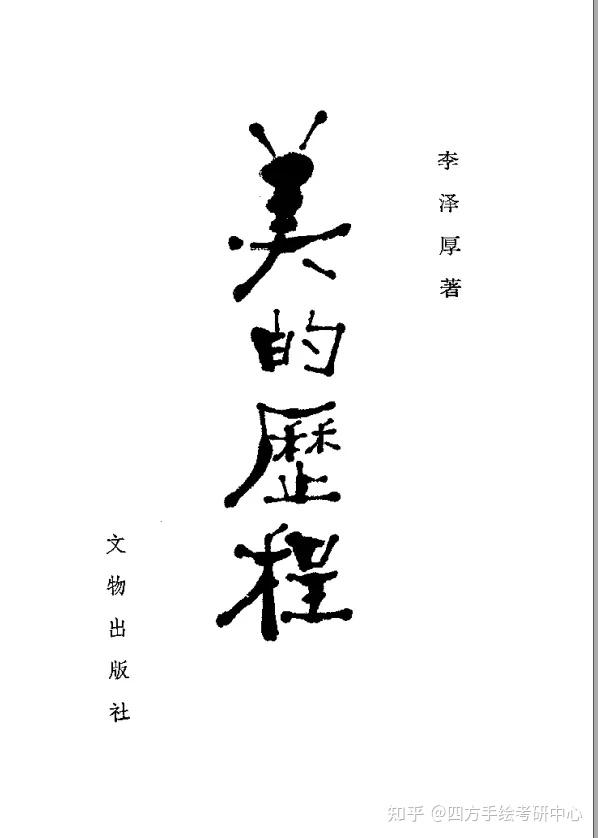 李泽厚著
美的歷程
文物出版社
知乎 @四方手绘考研中心